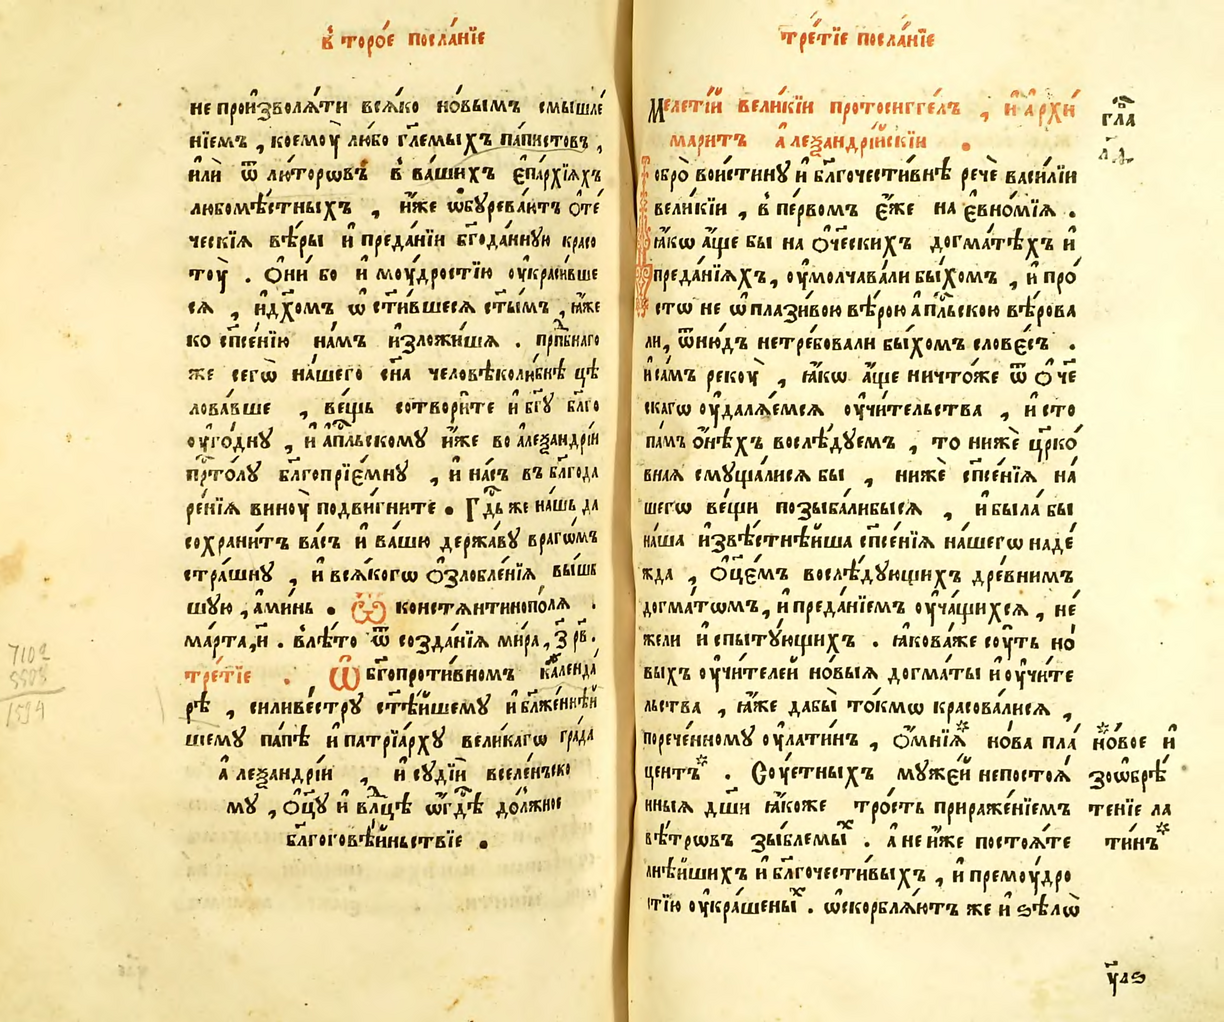 в҆торо́е посла́нїе
не произволѧ́ти всѧ́ко но́вымъ смышле́
нїемъ, коемоу̀ лю́бо гл҃емыхъ па́пистовъ,
и҆лѝ ѿ лю́торѡвъ в҆ ва́шихъ є҆па́рхїѧхъ
любомѣ́стныхъ, и҆́же ѡ҆буреваю́тъ ѻ҆те́
ческїѧ вѣ́ры и҆ преда́нїи бг҃ода́нную красо
тоу̀. Ѻ҆ни́ бо и҆ моу́дростїю оу҆кра́сивше
сѧ, и҆ дх҃омъ ѡ҆ст҃и́вшесѧ ст҃ымъ, ꙗ҆́же
ко сп҃се́нїю на́мъ и҆зложи́шѧ. прⷣпбнаго
же сегѡ̀ на́шего сн҃а человѣколю́бнѣ цѣ
лова́вше, ве́щь сотвори́те и҆ бг҃ꙋ бл҃го
оуго́днꙋ, и҆ а҆пⷭ҇льскомꙋ и҆́же во а҆леѯандрі́и
прⷭ҇то́лꙋ бл҃гопрїе́мнꙋ, и҆ на́съ въ бл҃года
ре́нїѧ виноу̀ подви́гните. Гдⷭ҇ь же на́шь да
сохрани́тъ ва́съ и҆ ва́шю держа́вꙋ врагѡ́мъ
стра́шнꙋ, и҆ всѧ́когѡ ѻ҆ѕлобле́нїѧ вы́шъ
шꙋю, а҆ми́нь. Ѿ константинопо́лѧ.
ма́рта, и҃. в҆лѣ́то ѿ созда́нїѧ ми́ра, ҂з҃ рв҃.
тре́тїе. Ѡ҆ бг҃опроти́вномъ календа
рѣ̀, силиве́стрꙋ ст҃ѣ́йшемꙋ и҆ бл҃же́ннѣй
шемꙋ па́пѣ и҆ патрїа́рхꙋ вели́кагѡ гра́да
а҆леѯандрі́и, и҆ сꙋдїѝ вселе́ньско
мꙋ, ѻ҆ц҃ꙋ и҆ влⷣцѣ ѡ҆гдⷭ҇ѣ до́лжное
бл҃гоговѣ́йньствїе.
тре́тїе посла́нїе
Меле́тїй вели́кїи протоси́ггелъ, и҆ архи
мари́тъ а҆леѯандрі́йскїи.
Добро̀ вои́стинꙋ и҆ бл҃гочести́внѣ речѐ васи́лїи
вели́кїи, в҆ пе́рвомъ є҆́же на є҆вно́мїѧ.
ꙗ҆́кѡ а҆́ще бы на ѻ҆́ч҃ескихъ догма́тѣхъ и҆
преда́нїѧхъ, оу҆молчава́ли бы́хомъ, и҆ про́
стѡ не ѡ҆плази́вою вѣ́рою а҆пⷭ҇льскою вѣ́рова
ли, ѿню́дъ нетре́бовали бы́хомъ слове́съ.
и҆ са́мъ рекоу̀, ꙗ҆́кѡ а҆́ще ничто́же ѿ ѻ҆́че
скагѡ оу҆далѧ́емсѧ оу҆чи́тельства, и҆ сто
па́мъ ѻ҆́нѣхъ послѣ́дꙋемъ, то нижѐ цр҃ко́
внаѧ смꙋща́лисѧ бы, нижѐ сп҃се́нїѧ на́
шегѡ ве́щи позыба́либысѧ, и҆ была̀ бы
на́ша и҆звѣ́стнѣйша сп҃се́нїѧ на́шегѡ наде́
жда, ѻ҆ц҃е́мъ послѣ́дꙋющихъ дре́внимъ
догма́тѡмъ, и҆ преда́нїемъ оу҆ча́щихсѧ, не́
жели и҆спытꙋ́ющихъ. ꙗ҆кова́же соу́ть но́
выхъ оу҆чи́телей но́выѧ догма́ты и҆ оу҆чи́те
льства, ꙗ҆́же дабы̀ то́кмѡ красова́лисѧ,
порече́нномꙋ оу҆лати́нъ, ѻ҆́мнїѧ* но́ва пла́
центъ*. Соу́етныхъ мꙋже́й непостоѧ́
нныѧ дш҃и ꙗ҆́коже тро́сть прираже́нїемъ
вѣ́трѡвъ зы́блемыⷯ. а҆ не и҆́же постоѧ́те
лнѣ́йшихъ и҆ бл҃гочести́выхъ, и҆ премоу́дро
стїю оу҆кра́шеныⷯ. ѡ҆скорблѧ́ютъ же и҆ ѕѣлѡ̀
гла
л҃д.
*но́вое и҆
зѡ҆брѣ́
те́нїе ла
ти́нъ*
у҃дѕ
710²
5508
1594